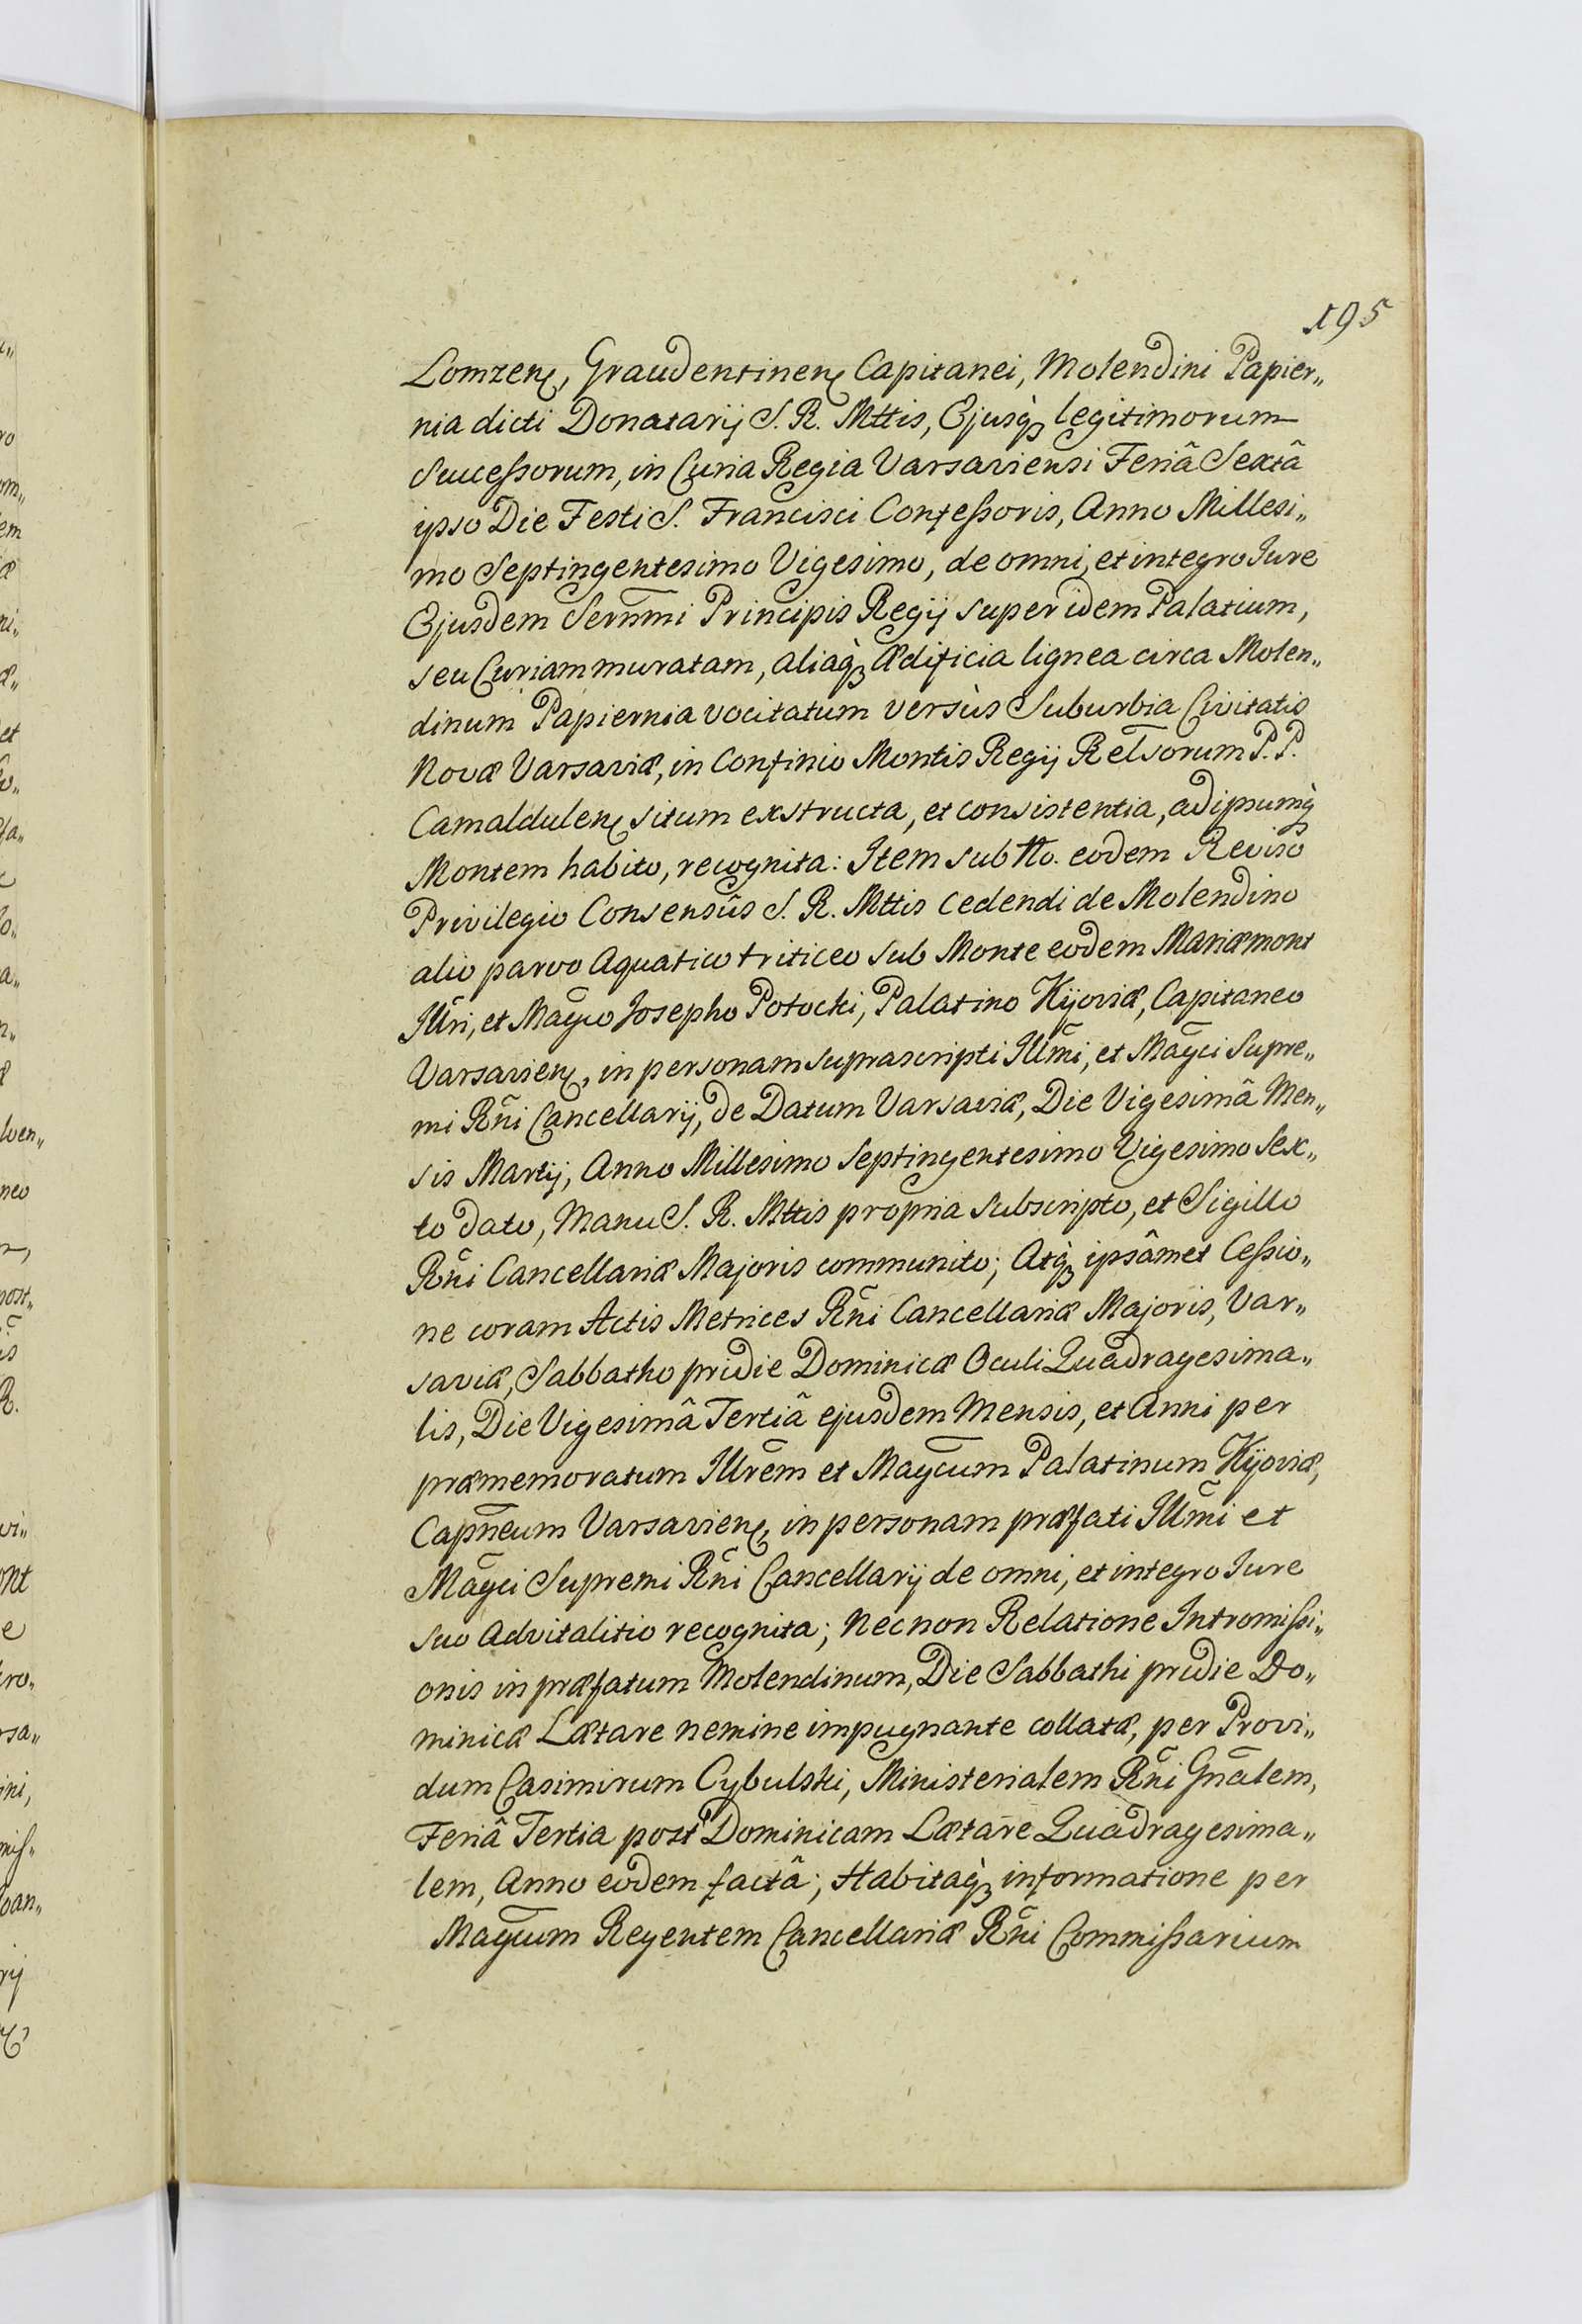 195
Lomzen, Graudentinen Capitanei, Molendini Papier„
nia dicti Donatarij S. R. Mttis, Ejusq legitimorum
Successorum, in Curia Regia Varsaviensi Feriâ Sextâ
ipso Die Festi S. Francisci Confessoris, Anno Millesi„
mo Septingentesimo Vigesimo, de omni, et integro Jure
Ejusdem Sernmi Principis Regij super idem Palatium,
seu Curiam muratam, aliaq Ædificia lignea circa Molen„
dinum Papiernia vocitatum versùs Suburbia Civitatis
Novæ Varsaviæ, in Confinio Montis Regij Relsorum P. P.
Camaldulen situm exstructa, et consistentia, ad ipsumq
Montem habito, recognita: Item sub tto. eodem Reviso
Privilegio Consensûs S. R. Mttis cedendi de Molendino
alio parvo Aquatico triticeo sub Monte eodem Mariæmont
Illri, et Magco Josepho Potocki, Palatino Kijoviæ, Capitaneo
Varsavien, in personam suprascripti Illmi, et Magci Supre„
mi Rni Cancellarij, de Datum Varsaviæ, Die Vigesimâ Men„
sis Martij, Anno Millesimo Septingentesimo Vigesimo Sex„
to dato, Manu S. R. Mttis propria subscripto, et Sigillo
Rni Cancellariæ Majoris communito; Atq ipsâmet Cessio„
ne coram Actis Metrices Rni Cancellariæ Majoris, Var„
saviæ, Sabbatho pridie Dominicæ Oculi Quadragesima„
lis, Die Vigesimâ Tertiâ ejusdem Mensis, et Anni per
præmemoratum Illrem et Magcum Palatinum Kijoviæ,
Capneum Varsavien, in personam præfati Illmi et
Magci Supremi Rni Cancellarij de omni, et integro Jure
suo Advitalitio recognita; Necnon Relatione Intromissi„
onis in præfatum Molendinum, Die Sabbathi pridie Do„
minicæ Lætare nemine impugnante collatæ, per Provi„
dum Casimirum Cybulski, Ministerialem Rni Gnalem,
Feriâ Tertia post Dominicam Lætare Quadragesima„
lem, Anno eodem factâ; Habitaq informatione per
Magcum Regentem Cancellariæ Rni Commissarium